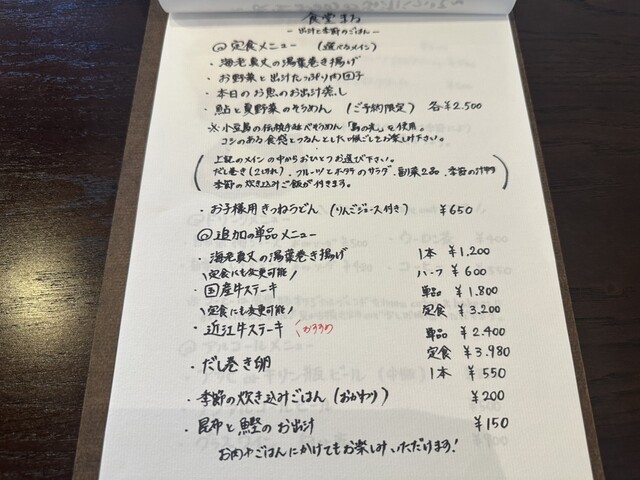 食堂まる
- 出汁と季節のごはん -
◎ 定食メニュー (選べるメイン)
・海老真丈の湯葉巻き揚げ
・お野菜と出汁たっぷり肉団子
・本日のお魚のお出汁蒸し
・鮎と夏野菜のそうめん (ご予約限定) 各¥2.500
※小豆島の伝統手延べそうめん「島の光」を使用。
コシのある食感とつるんとした喉ごしをお楽しみ下さい。
上記のメインの中からおひとつお選び下さい。
だし巻き(2切れ)・フルーツとホタテのサラダ・副菜2品・季節の汁物
季節の炊き込みご飯が付きます。
・お子様用きつねうどん (りんごジュース付き) ¥650
◎追加の単品メニュー
・海老真丈の湯葉巻き揚げ 1本 ¥1.200
\定食にも変更可能/ ハーフ ¥600
・国産牛ステーキ 単品 ¥1.800
\定食にも変更可能/ 定食 ¥3.200
・近江牛ステーキ おすすめ 単品 ¥2.400
定食 ¥3.980
・だし巻き卵 1本 ¥550
・季節の炊き込みごはん (おかわり) ¥200
・昆布と鰹のお出汁 ¥150
お肉やごはんにかけてもお楽しみいただけます!